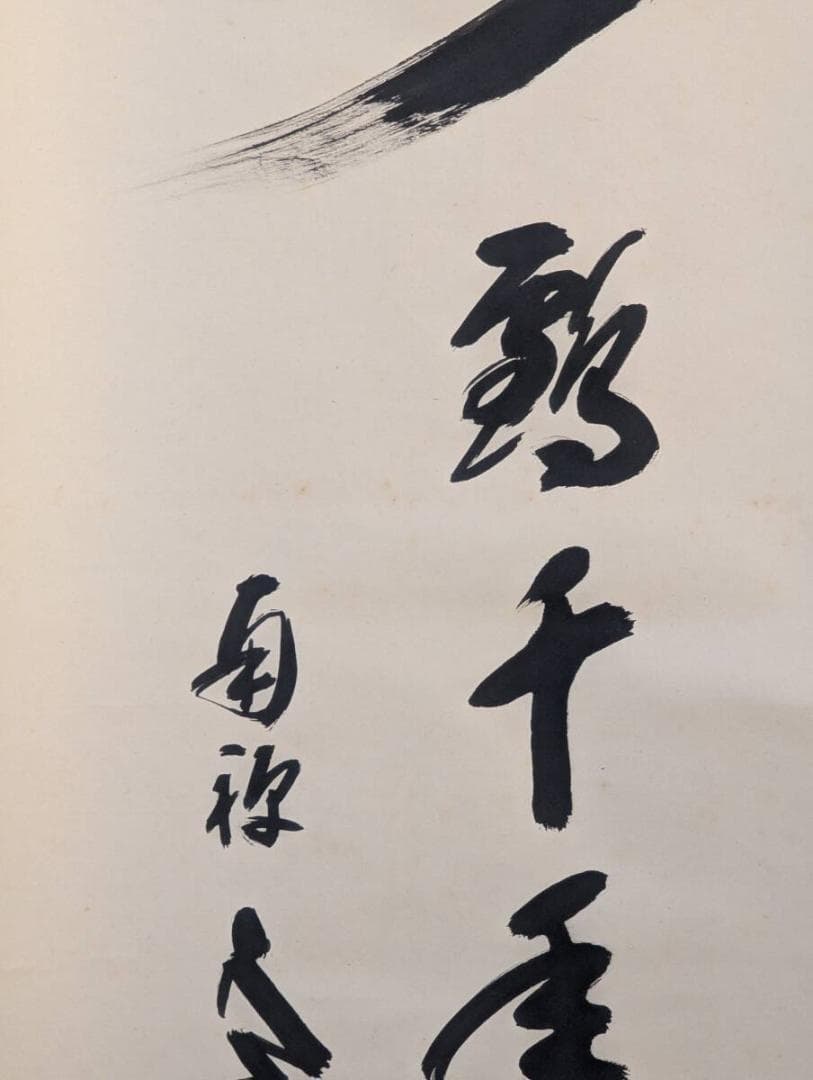 鶴千年
南禅